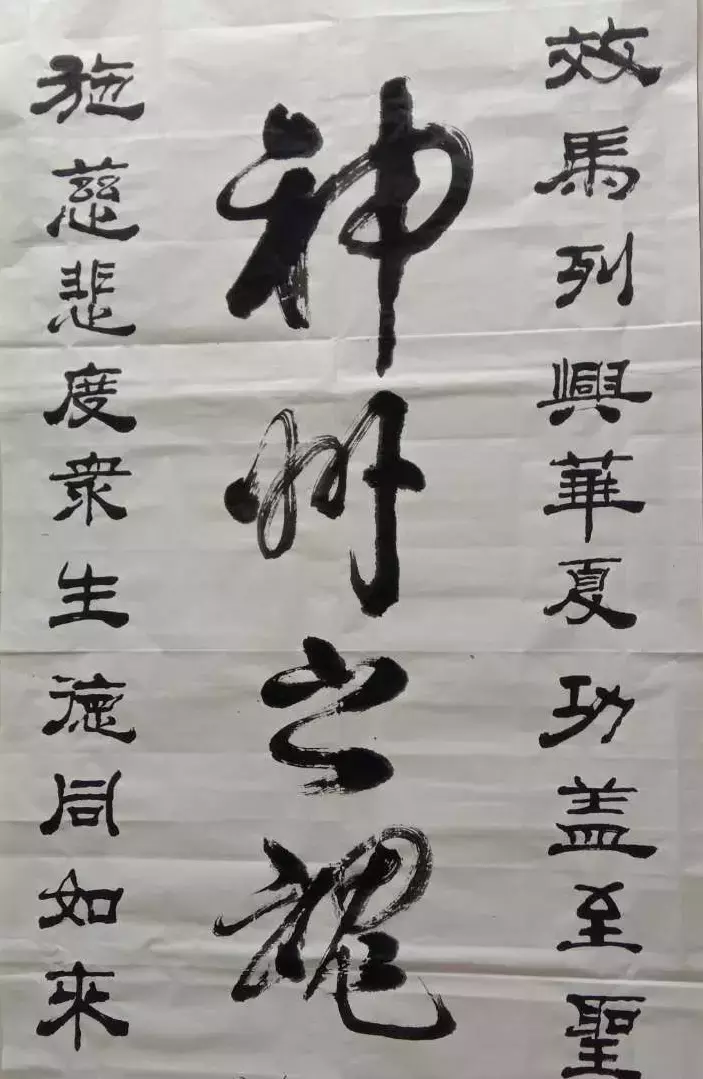 效馬列興華夏功盖至聖
神州之魂
施慈悲度衆生德同如來